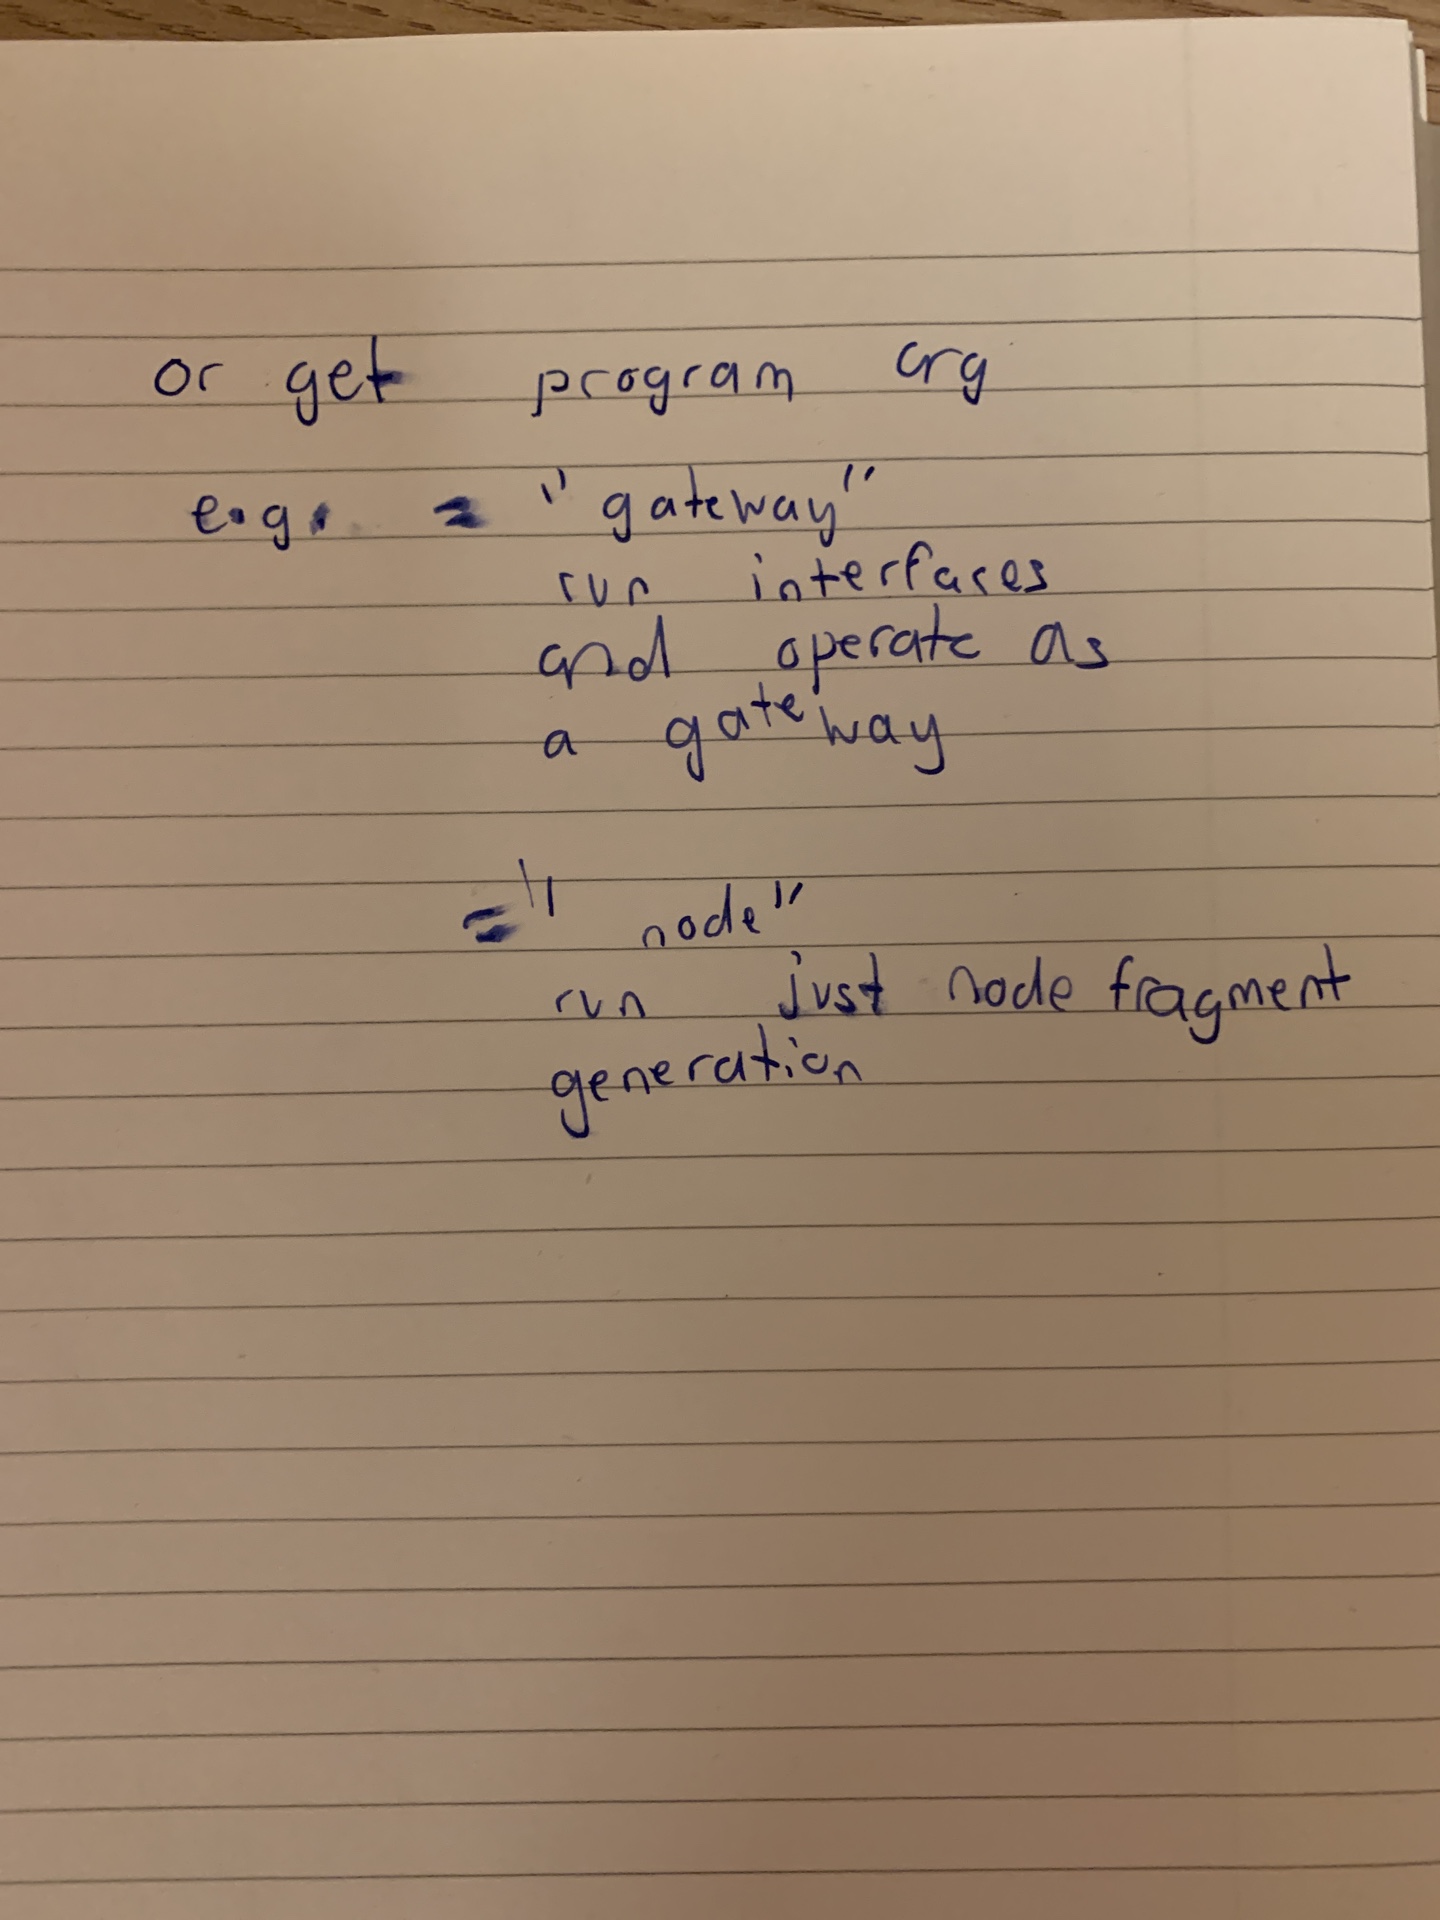 or get program arg
e.g. = "gateway"
run interfaces
and operate as
a gateway
= "node"
run just node fragment
generation